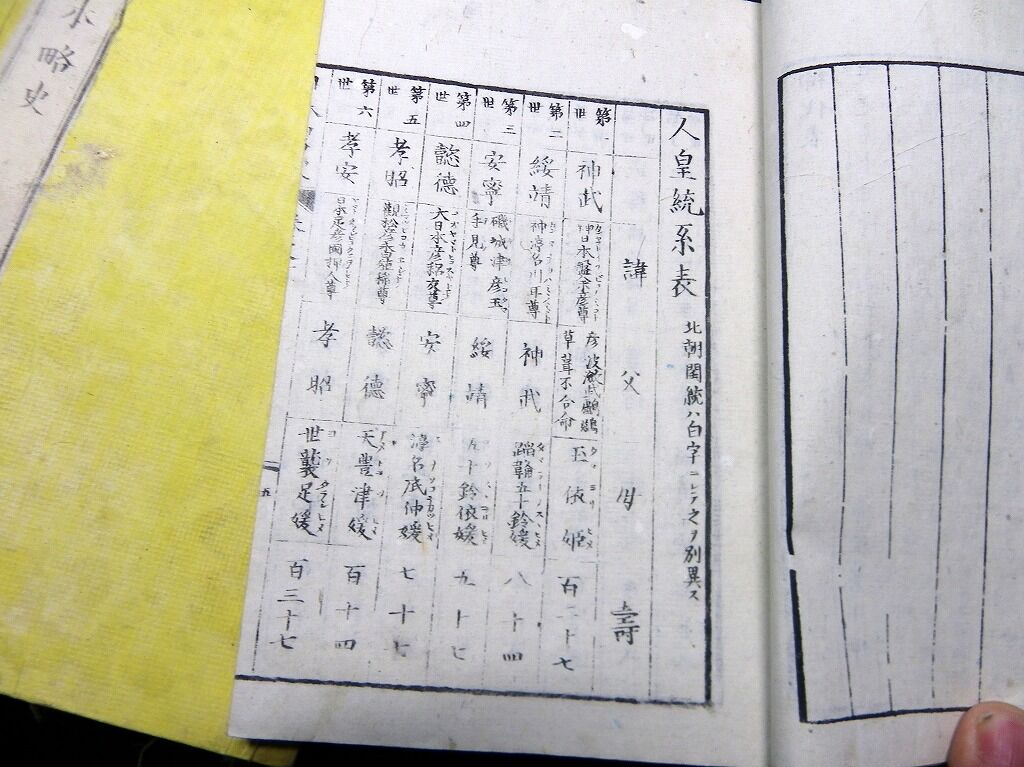 人皇統系表
北朝閏統ハ白字ニシテ之ヲ別異ス
諱 父 母 壽
第一世 神武 神日本盤余彦尊 彦波瀲武鸕鷀草葺不合命 玉依姫 百二十七
第二世 綏靖 神渟名川耳尊 神武 蹈鞴五十鈴媛 八十四
第三世 安寧 磯城津彦玉手見尊 綏靖 五十鈴依媛 五十七
第四世 懿德 大日本彦耜友尊 安寧 渟名底仲媛 七十七
第五世 孝昭 觀松彦香殖稲尊 懿德 天豊津媛 百十四
第六世 孝安 日本足彦國押人尊 孝昭 世襲足媛 百三十七
五
本略史